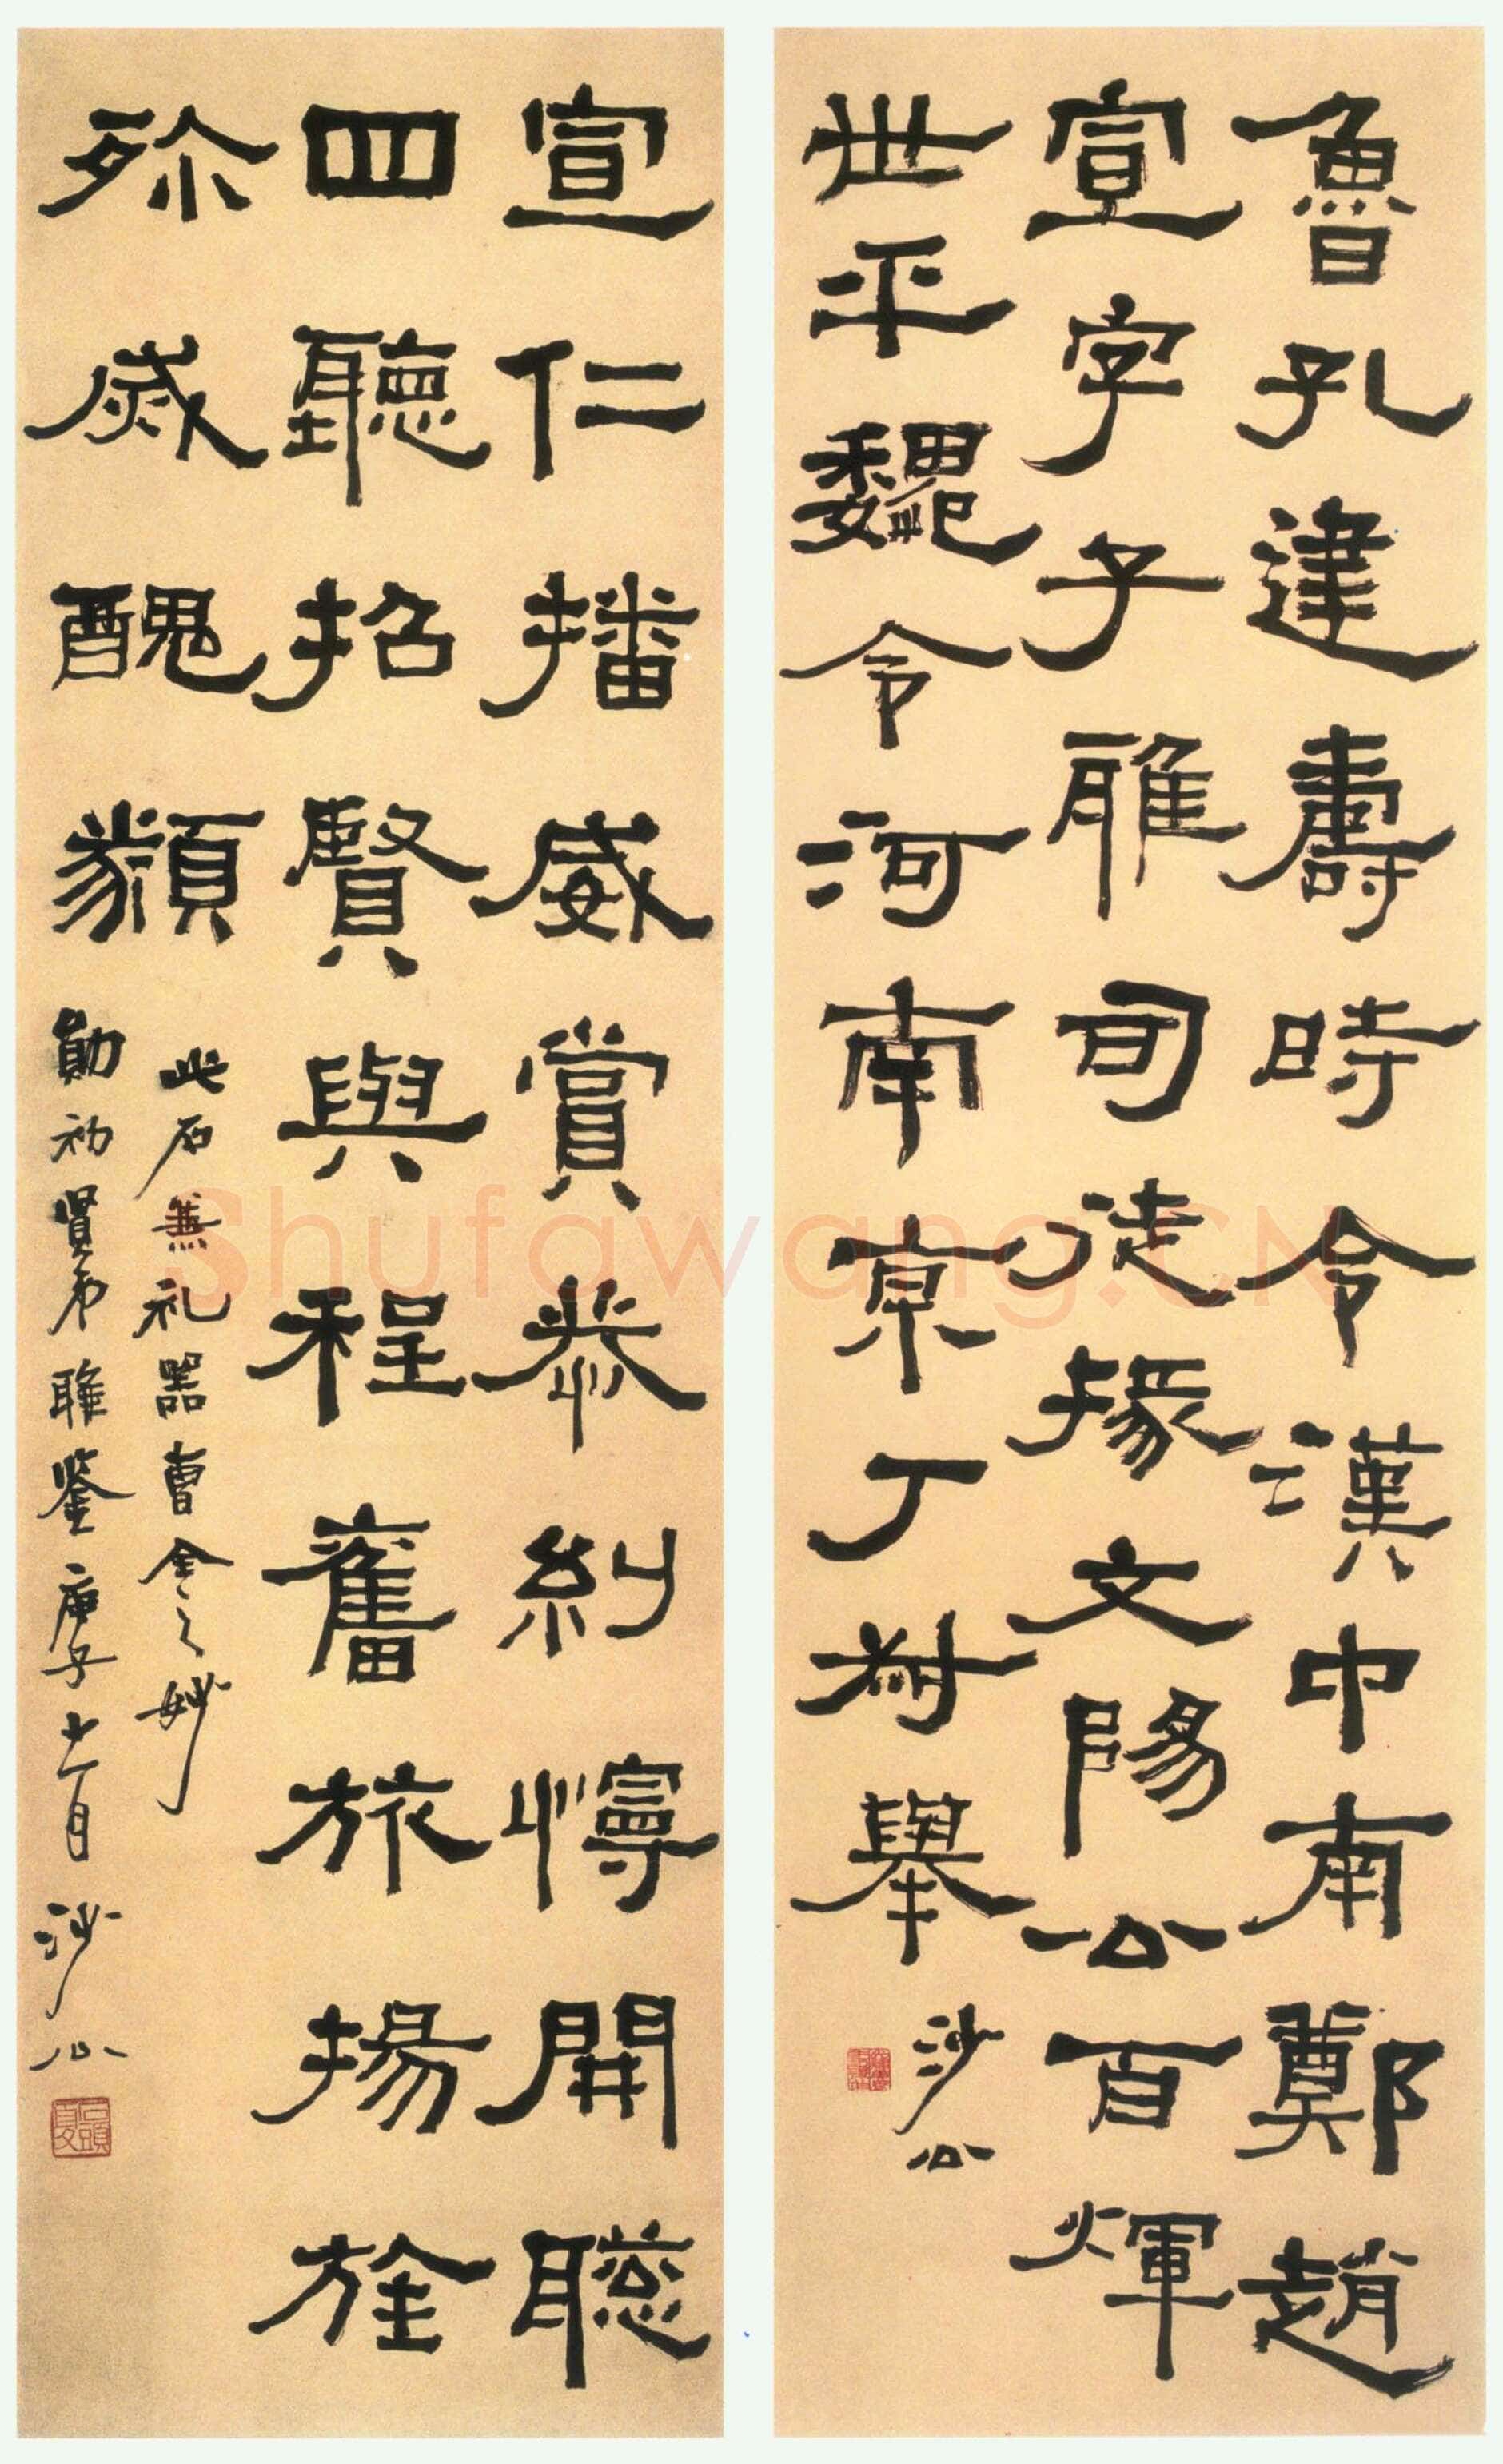 魯孔建壽時令漢中南鄭趙
宣字子雅司徒掾文陽公百煇
世平魏令河南京丁叔舉
沙公
宣仁播威賞恭糾懧開聰
四聽招賢與程奮旅揚旌
殄烕醜類
此石兼礼器曹全之妙
勛初賢弟雅鑒庚子十一月沙公
Shufawang.CN